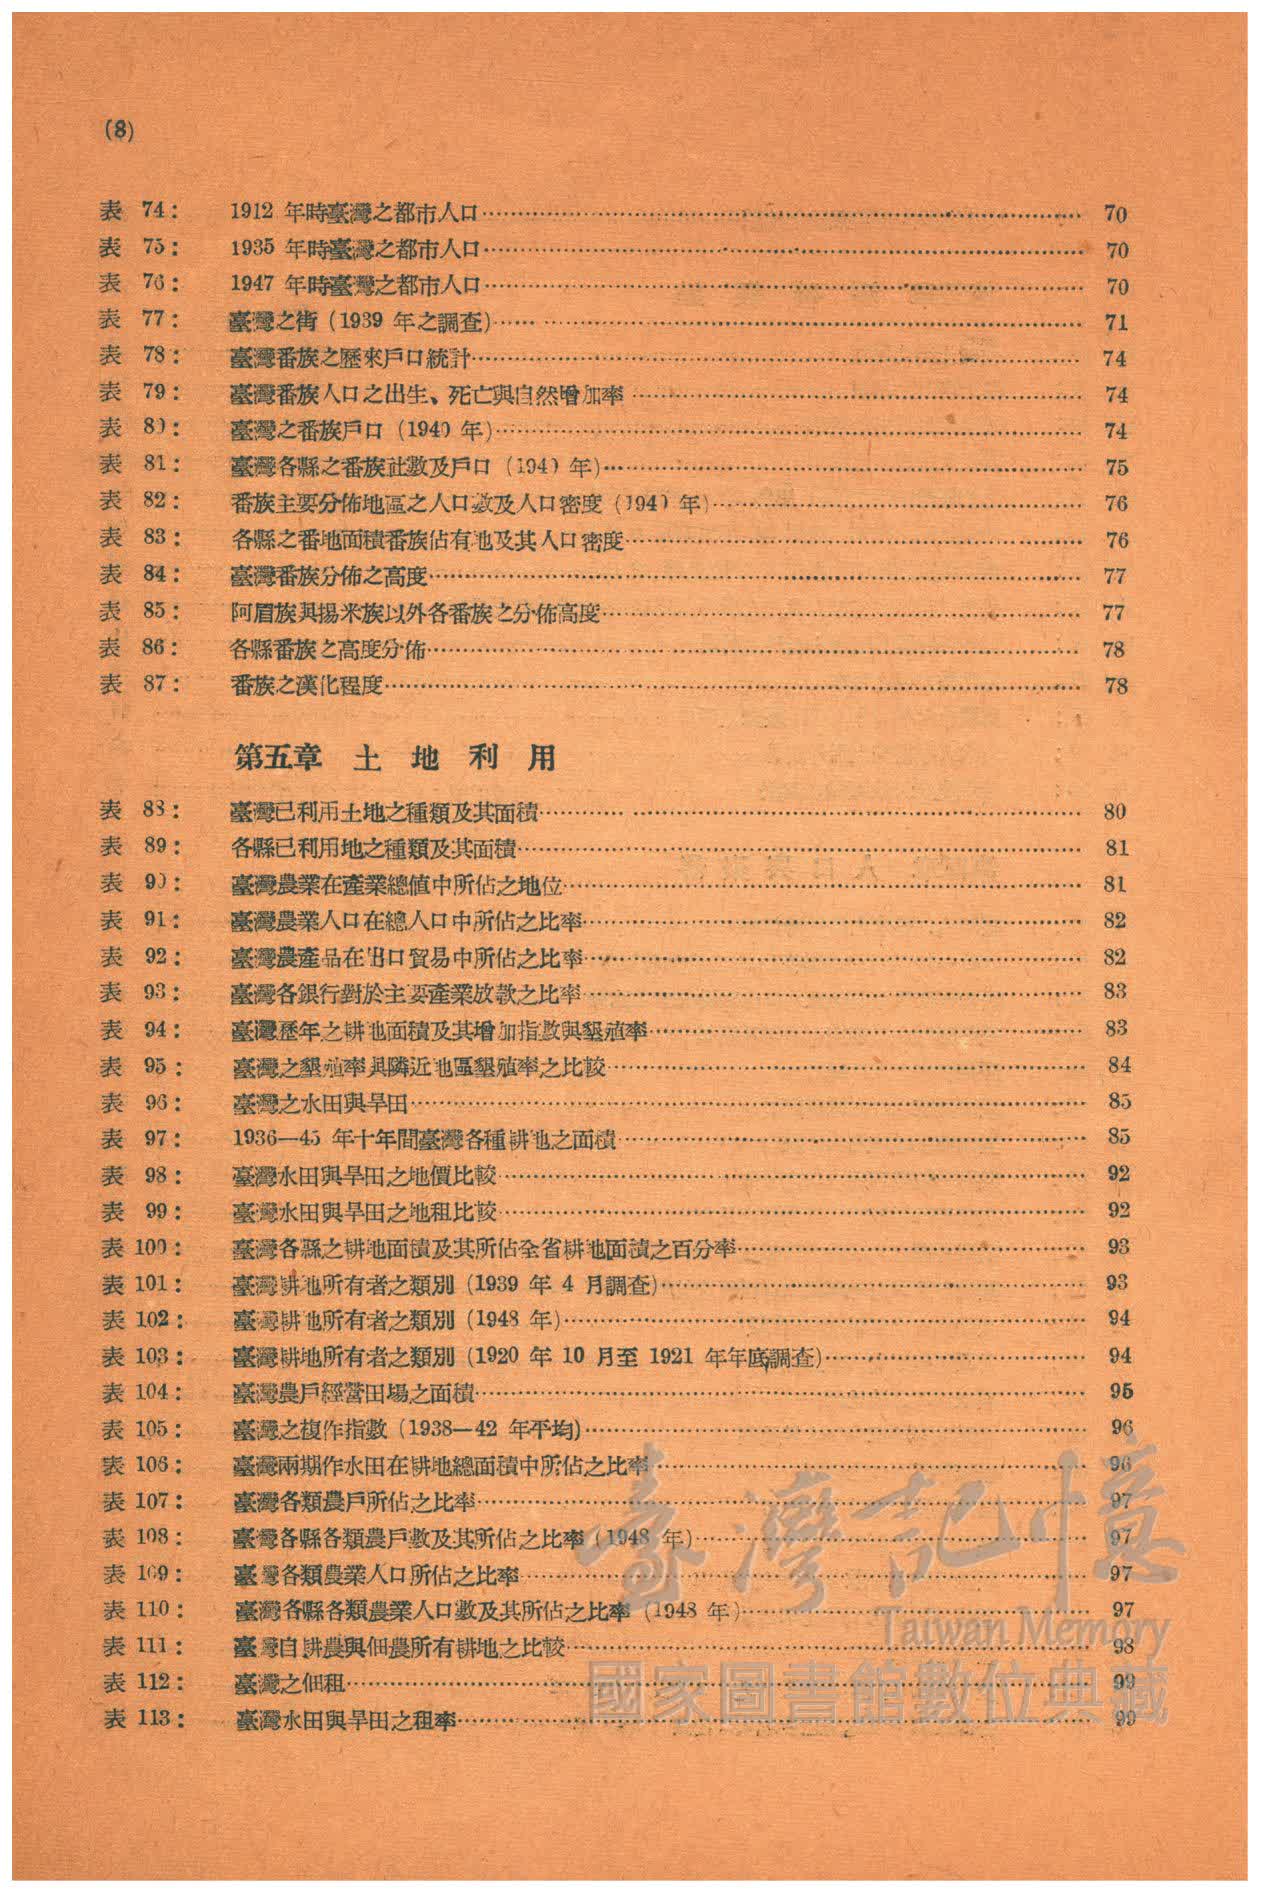 (8)
表 74： 1912 年時臺灣之都市人口 70
表 75： 1935 年時臺灣之都市人口 70
表 76： 1947 年時臺灣之都市人口 70
表 77： 臺灣之街 (1939 年之調查) 71
表 78： 臺灣番族之歷來戶口統計 74
表 79： 臺灣番族人口之出生、死亡與自然增加率 74
表 80： 臺灣之番族戶口 (1940 年) 74
表 81： 臺灣各縣之番族社數及戶口 (1940 年) 75
表 82： 番族主要分佈地區之人口數及人口密度 (1940 年) 76
表 83： 各縣之番地面積番族佔有地及其人口密度 76
表 84： 臺灣番族分佈之高度 77
表 85： 阿眉族與揚米族以外各番族之分佈高度 77
表 86： 各縣番族之高度分佈 78
表 87： 番族之漢化程度 78
第五章 土地利用
表 88： 臺灣已利用土地之種類及其面積 80
表 89： 各縣已利用地之種類及其面積 81
表 90： 臺灣農業在產業總值中所佔之地位 81
表 91： 臺灣農業人口在總人口中所佔之比率 82
表 92： 臺灣農產品在出口貿易中所佔之比率 82
表 93： 臺灣各銀行對於主要產業放款之比率 83
表 94： 臺灣歷年之耕地面積及其增加指數與墾殖率 83
表 95： 臺灣之墾殖率與隣近地區墾殖率之比較 84
表 96： 臺灣之水田與旱田 85
表 97： 1936—45 年十年間臺灣各種耕地之面積 85
表 98： 臺灣水田與旱田之地價比較 92
表 99： 臺灣水田與旱田之地租比較 92
表 100： 臺灣各縣之耕地面積及其所佔全省耕地面積之百分率 93
表 101： 臺灣耕地所有者之類別 (1939 年 4 月調查) 93
表 102： 臺灣耕地所有者之類別 (1948 年) 94
表 103： 臺灣耕地所有者之類別 (1920 年 10 月至 1921 年年底調查) 94
表 104： 臺灣農戶經營田場之面積 95
表 105： 臺灣之複作指數 (1938—42 年平均) 96
表 106： 臺灣兩期作水田在耕地總面積中所佔之比率 96
表 107： 臺灣各類農戶所佔之比率 97
表 108： 臺灣各縣各類農戶數及其所佔之比率 (1948 年) 97
表 109： 臺灣各類農業人口所佔之比率 97
表 110： 臺灣各縣各類農業人口數及其所佔之比率 (1948 年) 97
表 111： 臺灣自耕農與佃農所有耕地之比較 98
表 112： 臺灣之佃租 99
表 113： 臺灣水田與旱田之租率 99
臺灣記憶
Taiwan Memory
國家圖書館數位典藏